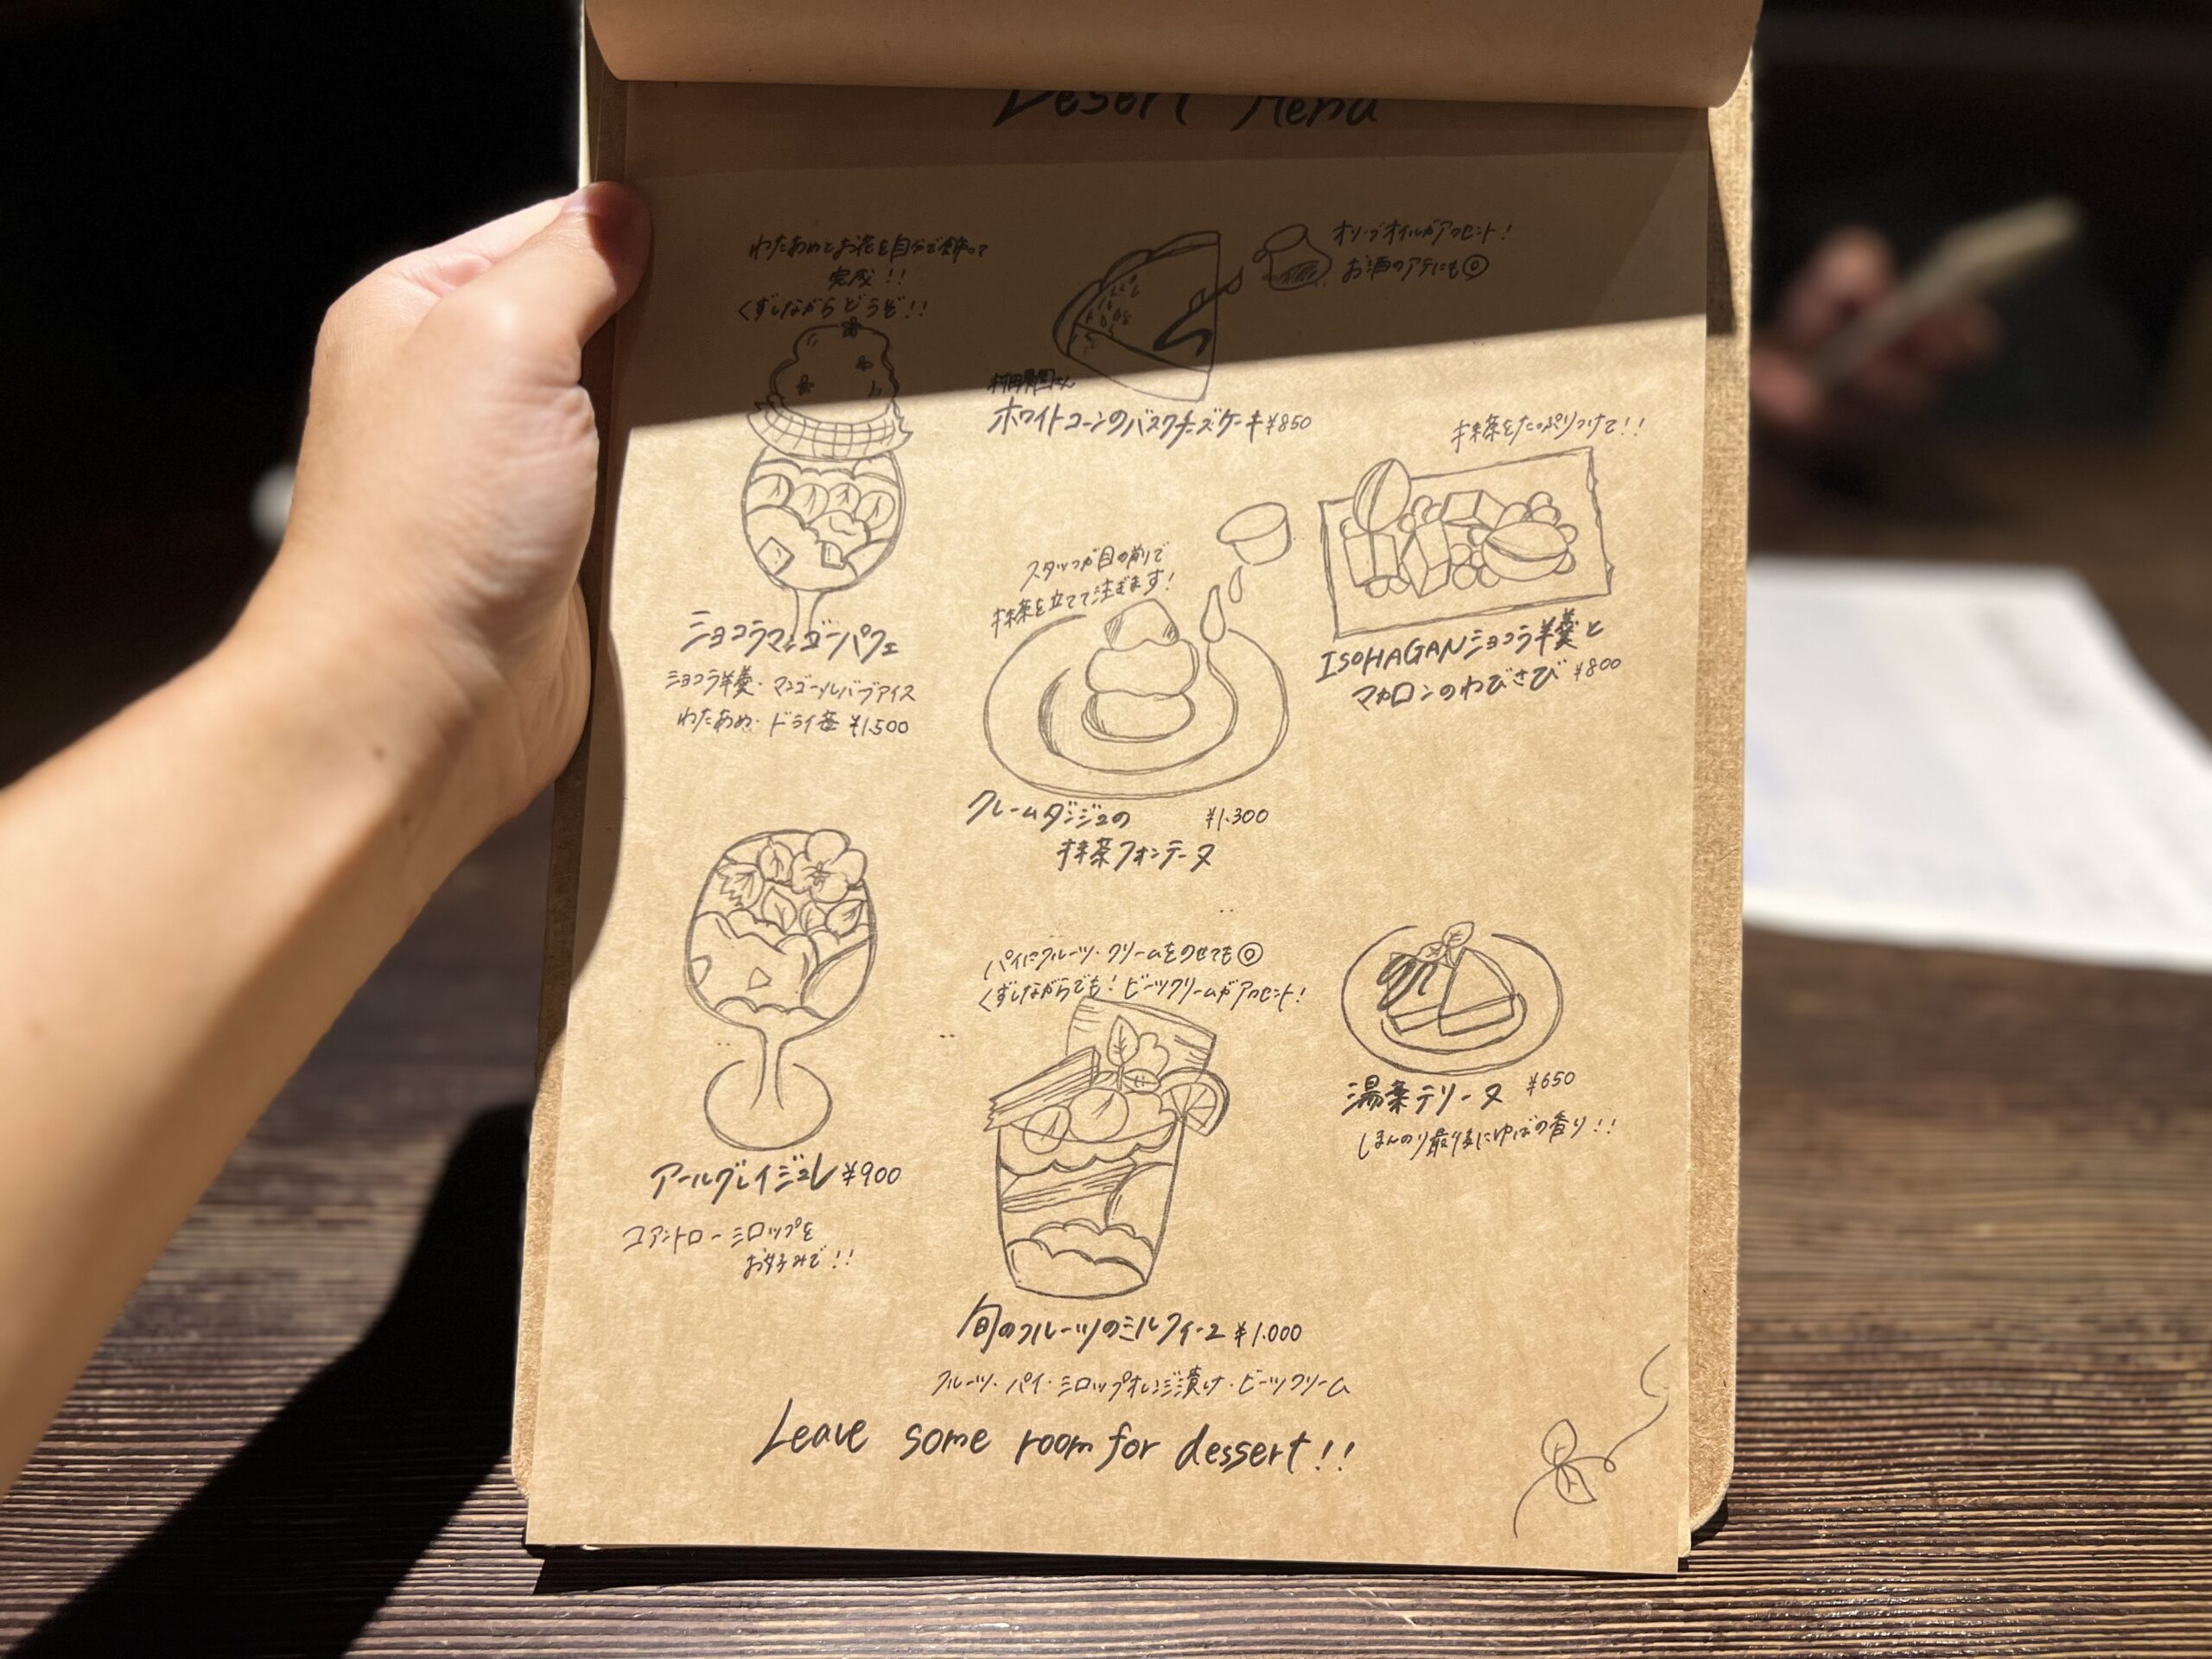 Desert Menu
わたあめとお花を自分で飾って
完成!!
くずしながらどうぞ!!
ショコラマンゴーパフェ
ショコラ羊羹・マンゴールバーブアイス
わたあめ・ドライ苺 ¥1.500
オリーブオイルがアクセント!
お酒のアテにも◎
村田農園さん
ホワイトコーンのバスクチーズケーキ ¥850
抹茶をたっぷりつけて!!
ISOHAGANショコラ羊羹と
マカロンのわびさび ¥800
スタッフが目の前で
抹茶を立てて注ぎます!
クレームダンジュの ¥1.300
抹茶フォンテーヌ
アールグレイジュレ ¥900
コアントローシロップを
お好みで!!
パイにフルーツ・クリームをのせても◎
くずしながらでも!ビーツクリームがアクセント!
旬のフルーツのミルフィーユ ¥1.000
フルーツ・パイ・シロップオレンジ漬け・ビーツクリーム
湯葉テリーヌ ¥650
ほんのり最後にゆばの香り!!
Leave some room for dessert!!